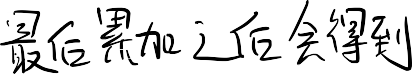 最后累加之后会得到